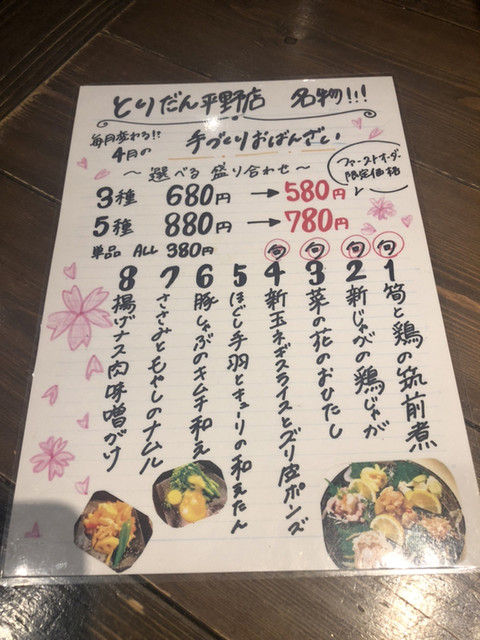 とりだん平野店 名物!!!
毎月変わる!!
4月の
手づくりおばんざい
ファーストオーダー
限定価格
～選べる盛り合わせ～
3種 680円→580円
5種 880円→780円
単品 ALL 380円
旬 1 筍と鶏の筑前煮
旬 2 新じゃがの鶏じゃが
旬 3 菜の花のおひたし
旬 4 新玉ネギスライスとズリ皮ポンズ
5 ほぐし手羽とキューリの和えたん
6 豚しゃぶのキムチ和え
7 ささみともやしのナムル
8 揚げナス肉味噌がけ